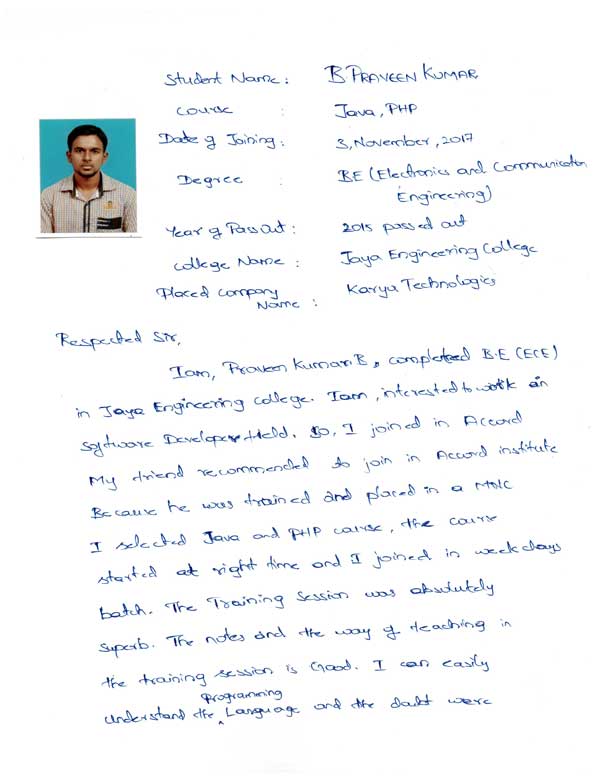 Student Name: B PRAVEEN KUMAR
Course : Java, PHP
Date of Joining: 3, November, 2017
Degree : BE (Electronics and Communication
Engineering)
Year of Pass Out: 2015 passed out
College Name : Jaya Engineering College
Placed Company
Name : Karya Technologies
Respected Sir,
Iam, Praveen Kumar.B, completed B.E (ECE)
in Jaya Engineering college. Iam, interested to work in
Software Developer Field. So, I joined in Accord
My friend recommended to join in Accord institute
Because he was trained and placed in a MNC
I selected Java and PHP course, the course
started at right time and I joined in weekdays
batch. The Training Session was absolutely
superb. The notes and the way of teaching in
the training session is Good. I can easily
understand the Programming Language and the doubt were